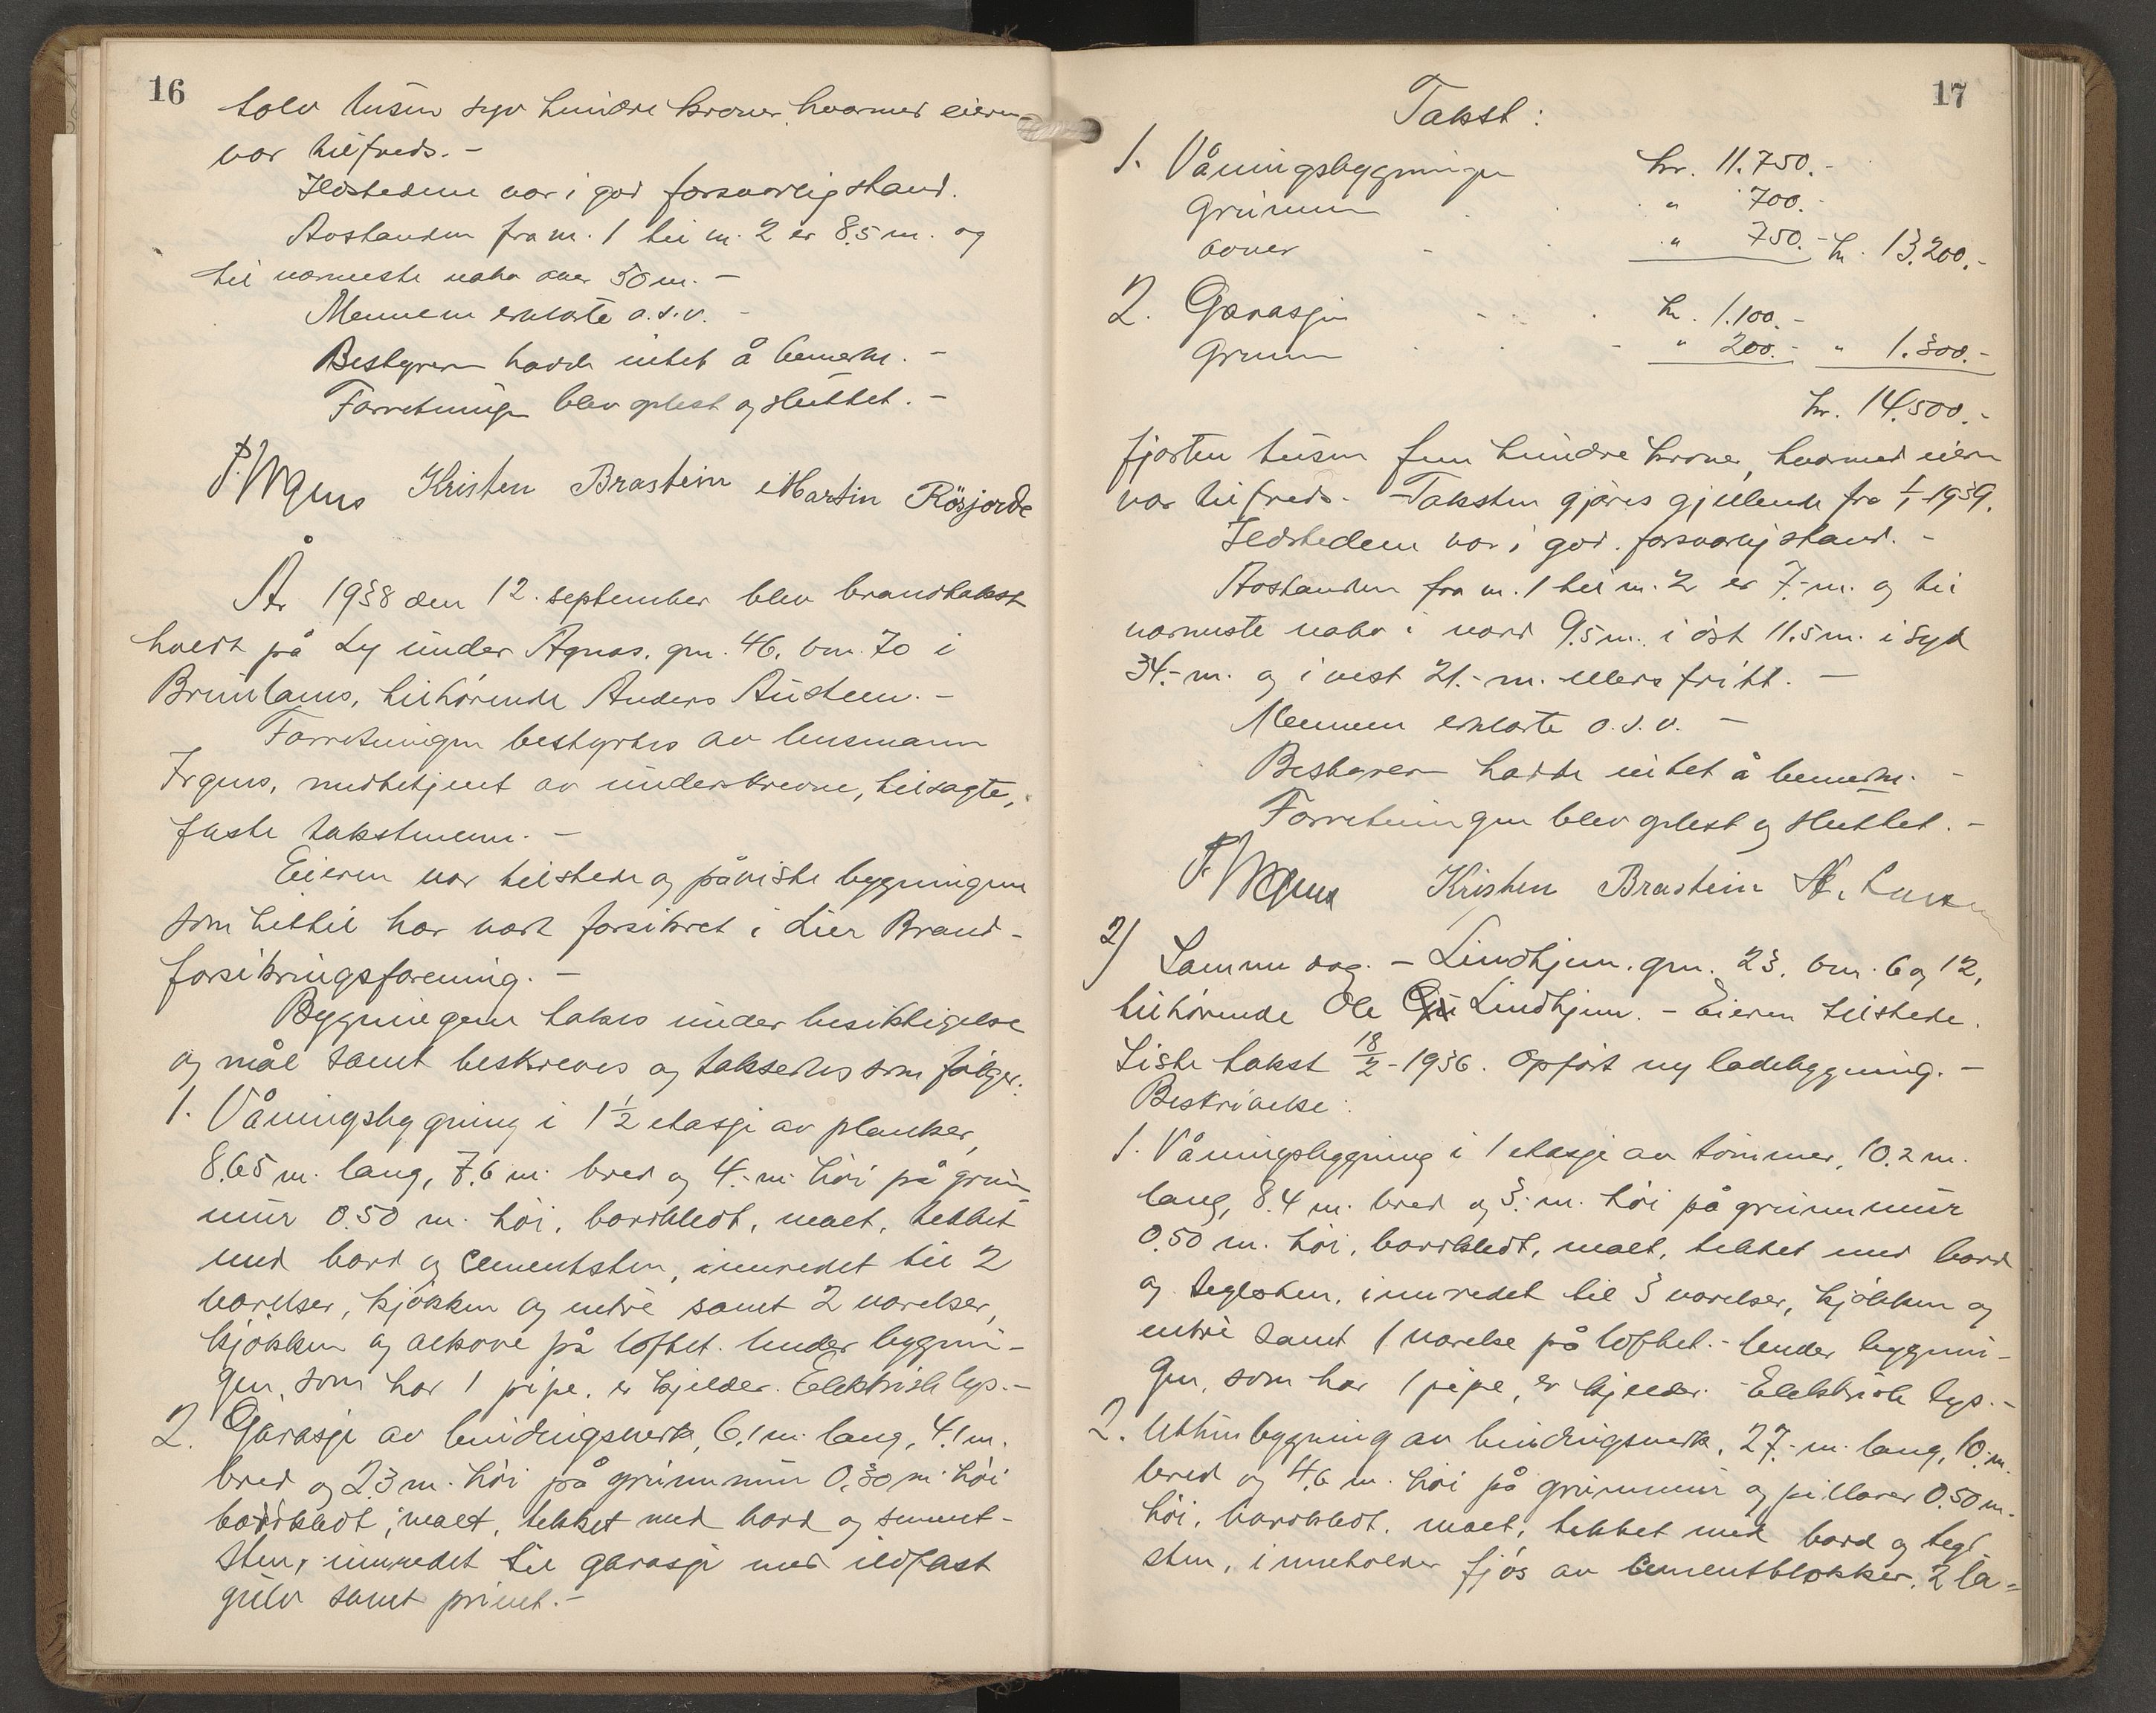 16
tolv tusen syv hundre kroner, hvormed eieren
var tilfreds. -
Ildstedene var i god forsvarlig stand.
Avstanden fra m. 1 til m. 2 er 8.5 m. og
til nærmeste nabo over 50 m. -
Mennene erklærte o.s.v. -
Bestyreren hadde intet å bemerke. -
Forretningen blev oplest og sluttet. -
Kristen Brastein Martin Rösjorde
År 1938 den 12. september blev brandtakst
holdt på Ly under Agnes, gnr. 46, bnr. 70 i
Brunlanes, tilhörende Anders Austeen. -
Forretningen bestyrtes av lensmann
Irgens, medbetjent av underskrevne, tilsagte,
faste takstmenn. -
Eieren var tilstede og påviste bygningene
som hittil har vært forsikret i Lier Brand-
forsikringsforening. -
Bygningene tokes under besiktigelse
og mål samt beskreves og takseres som fölger:
1. Våningsbygning i 1 1/2 etasje av planker,
8.65 m. lang, 7.6 m. bred og 4.- m. höi på grun-
mur 0.50 m. höi, bordkledt, malt, tekket
med bord og cementsten, innredet til 2
værelser, kjökken og entré samt 2 værelser,
kjökken og alkove på loftet. Under bygnin-
gen, som har 1 pipe, er kjelder. Elektrisk lys. -
2. Garasje av bindingsverk, 6.1 m. lang, 4.1 m.
bred og 2.3 m. höi på grunnmur 0.30 m. höi
bordkledt, malt, tekket med bord og sement-
sten, innredet til garasje med ildfast
gulv samt privet. -
17
Takst:
1. Våningsbygningen kr. 11.750.-
Grunnen " 700.-
ovner " 750.- kr. 13.200.-
2. Garasjen kr. 1.100.-
Grunnen " 200.- " 1.300.-
kr. 14.500.-
fjorten tusen fem hundre kroner, hvormed eieren
var tilfreds. - Taksten gjöres gjellende fra 1/1 1939.
Ildstedene var i god forsvarlig stand. -
Avstanden fra m. 1 til m. 2 er 7.- m. og til
nærmeste nabo i nord 9.5 m. i öst 11.5 m. i syd
34.- m. og i vest 21.- m. ellers fritt. -
Mennene erklærte o.s.v. -
Bestyreren hadde intet å bemerke. -
Forretningen blev oplest og sluttet. -
Kristen Brastein
2) Samme dag. - Lindhjem, gnr. 23, bnr. 6 og 12,
tilhörende Ole Lindhjem. - Eieren tilstede.
Siste takst 18/2 - 1936. Opfört ny ladebygning. -
Beskrivelse:
1. Våningsbygning i 1 etasje av tömmer, 10.2 m.
lang, 8.4 m. bred og 3.- m. höi på grunnmur
0.50 m. höi, bordkledt, malt, tekket med bord
og teglsten, innredet til 3 værelser, kjökken og
entré samt 1 værelse på loftet. - Under bygnin-
gen, som har 1 pipe, er kjelder. - Elektrisk lys. -
2. Uthusbygning av bindingsverk, 27.- m. lang, 10.- m.
bred og 4.6 m. höi på grunnmur og pillarer 0.50 m.
höi, bordkledt, malt, tekket med bord og tegl-
sten, inneholder fjös av cementblokker, 2 la-